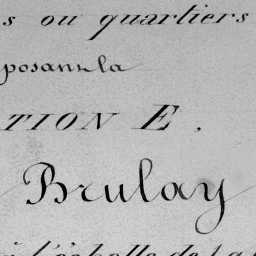 s ou quartiers
posant la
TION E.
Brulay
à l'échelle de 1 a